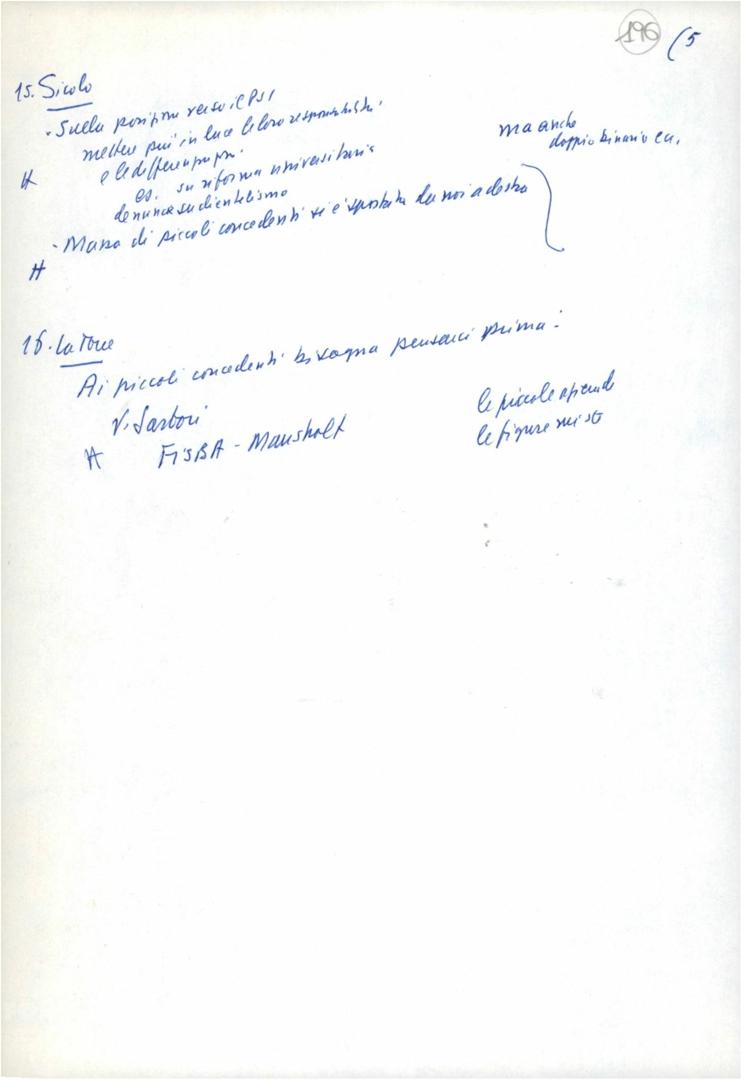 196 (5
15. Sicolo
- Sulla posizione verso il PSI
mettere più in luce le loro responsabilità
e le differenze pr.
es. su riforma universitaria
denunce su clientelismo
ma anche
doppio binario ecc.
- Massa di piccoli concedenti si è spostata da noi a destra
16. La Torre
Ai piccoli concedenti bisogna pensarci prima!
V. Sartori
FISBA - Mansholt
le piccole aziende
le figure miste